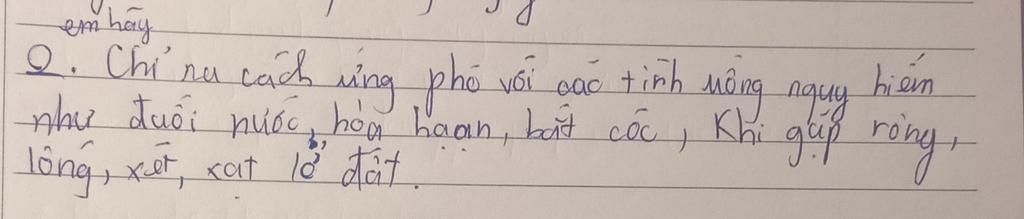 em hãy
2. Chỉ ra cách ứng phó với các tình uống nguy hiểm
như đuối nước, hỏa hoạn, bắt cóc, Khi gặp rông,
lông, xét, xạt lở đất.